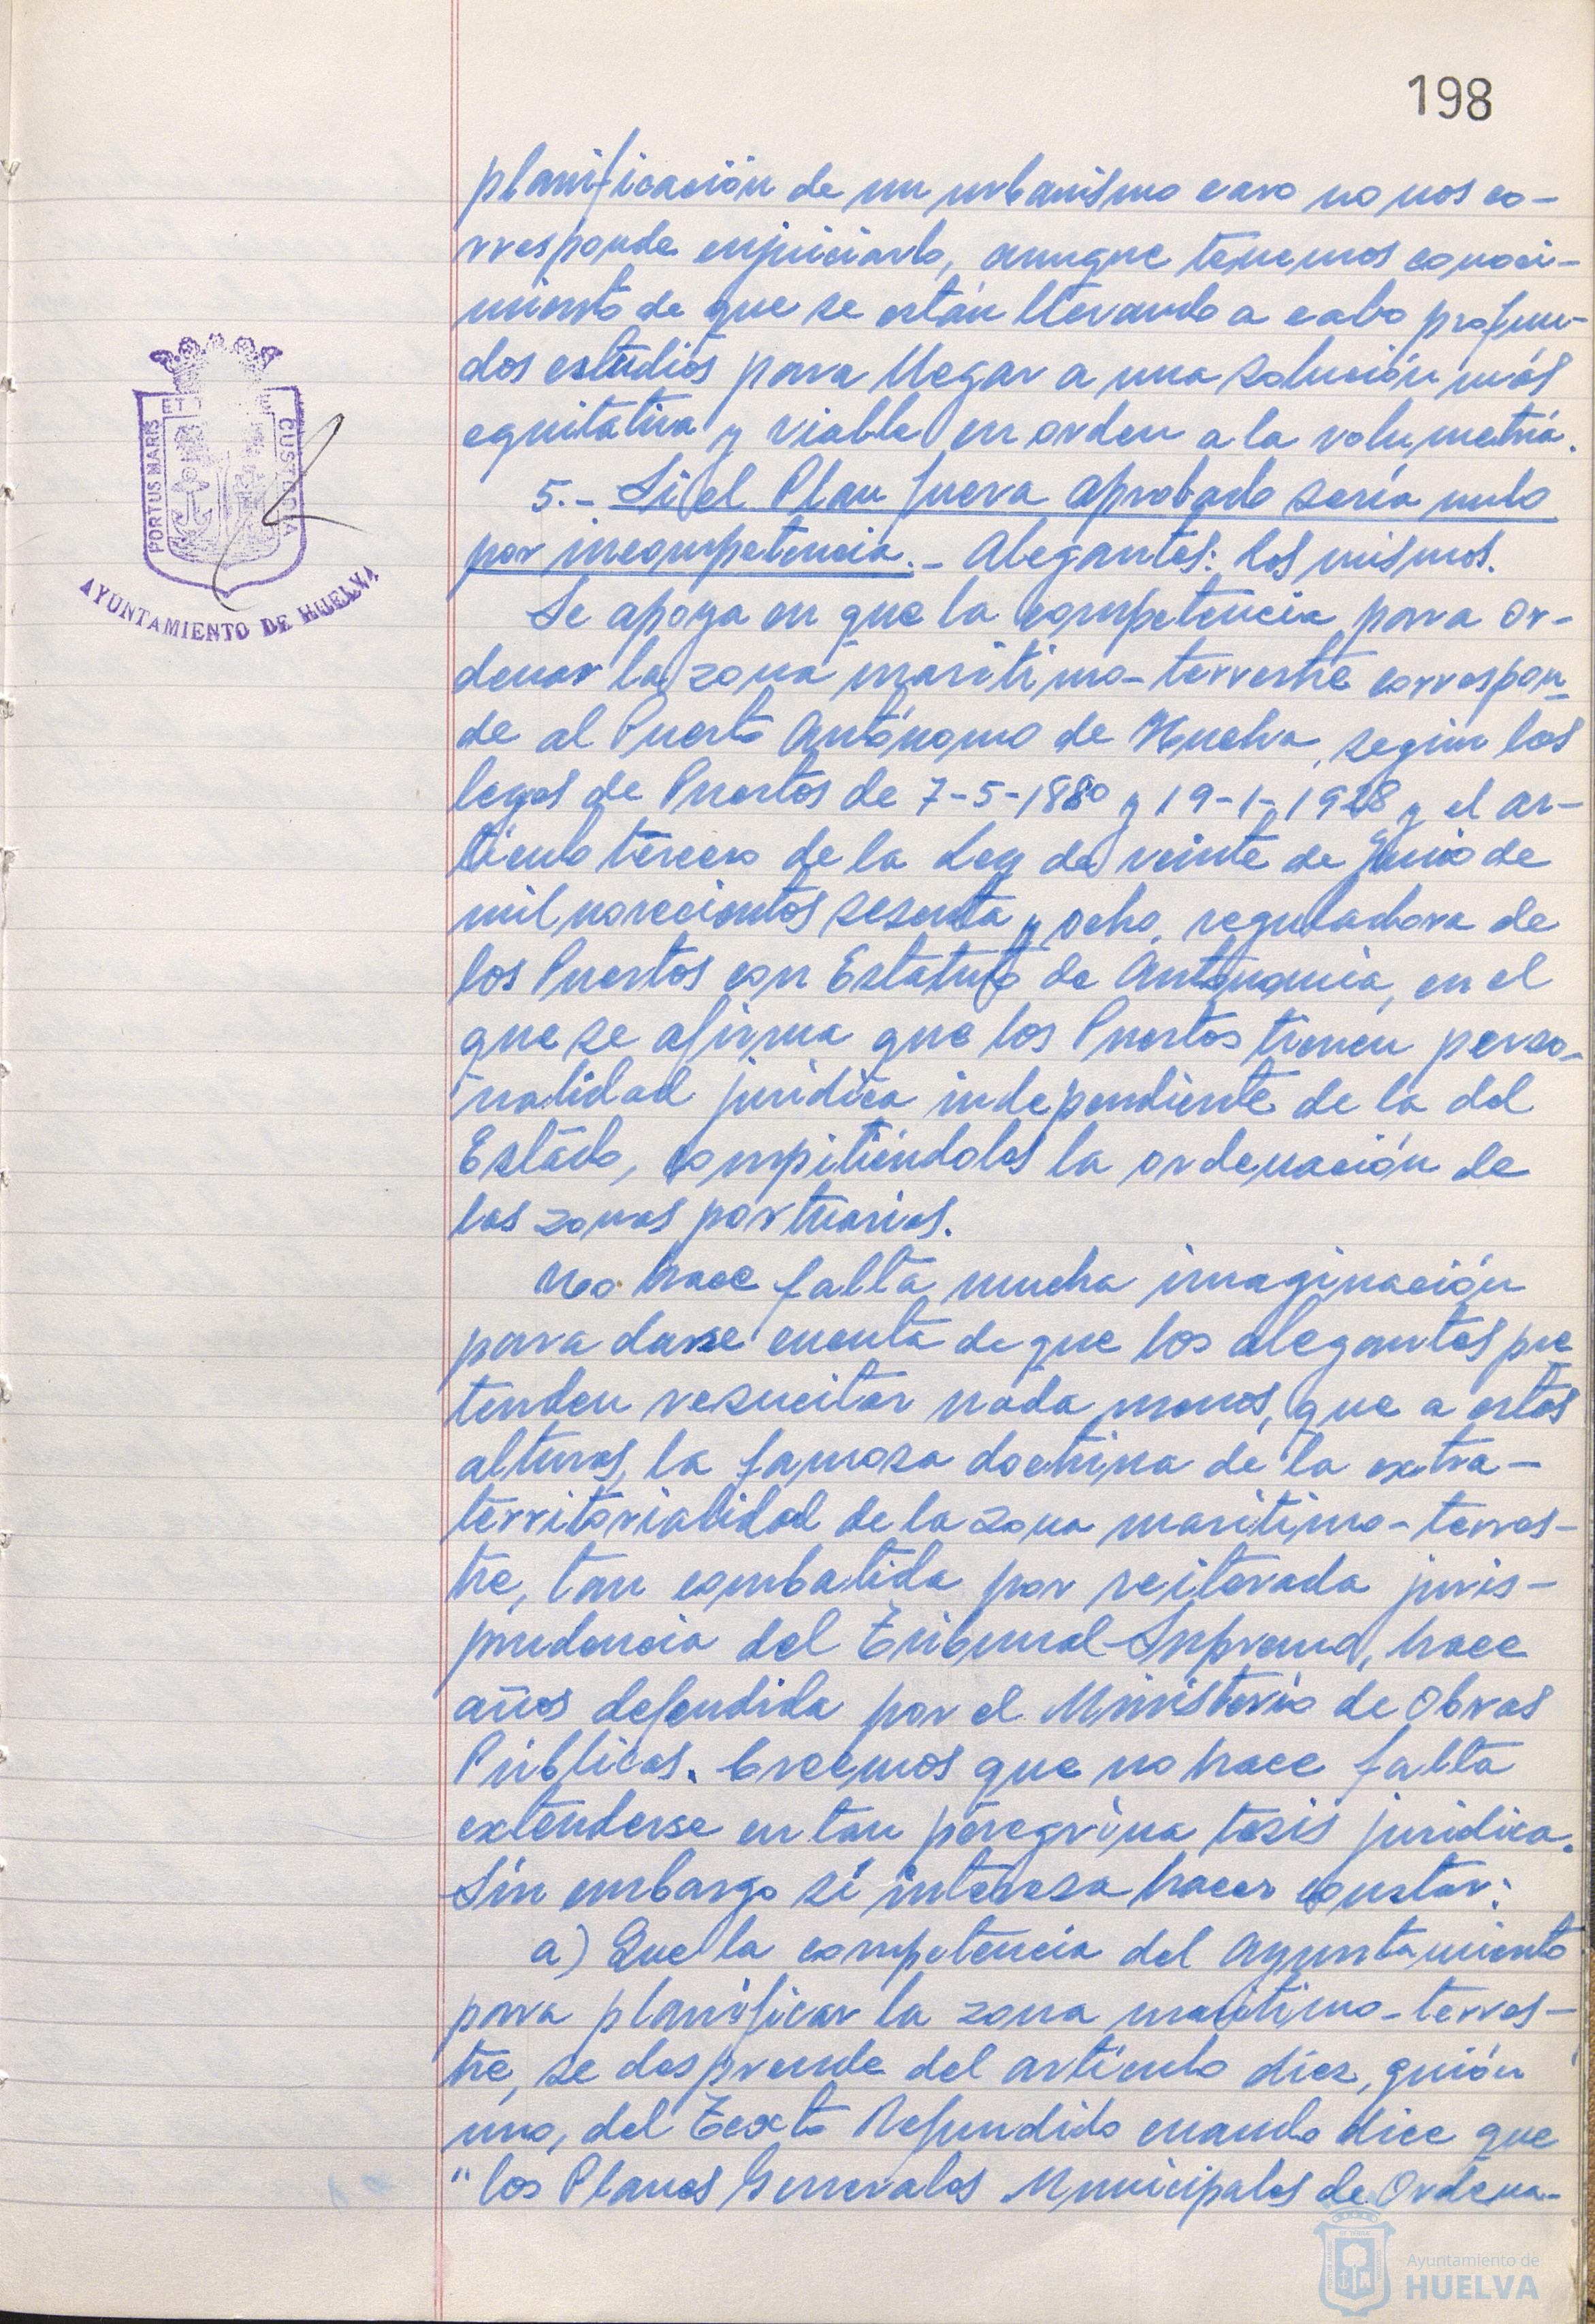 198
planificación de un urbanismo caro no nos co-
rresponde enjuiciarlo, aunque tenemos conoci-
miento de que se están llevando a cabo profun-
dos estudios para llegar a una solución más
equitativa y viable en orden a la volumetría.
5.- Si el Plan fuera aprobado sería nulo
por incompetencia.- Alegantes: los mismos.
Se apoya en que la competencia para or-
denar la zona marítimo-terrestre correspon-
de al Puerto Autónomo de Huelva, según las
leyes de Puertos de 7-5-1880 y 19-1-1928 y el ar-
tículo tercero de la Ley de veinte de Junio de
mil novecientos sesenta y ocho, reguladora de
los Puertos con Estatuto de Autonomía, en el
que se afirma que los Puertos tienen perso-
nalidad jurídica independiente de la del
Estado, compitiéndoles la ordenación de
las zonas portuarias.
No hace falta mucha imaginación
para darse cuenta de que los alegantes pre
tenden resucitar nada menos, que a estas
alturas, la famosa doctrina de la extra-
territorialidad de la zona marítimo-terres-
tre, tan combatida por reiterada juris-
prudencia del Tribunal Supremo, hace
años defendida por el Ministerio de Obras
Públicas. Creemos que no hace falta
extenderse en tan peregrina tesis jurídica.
Sin embargo sí interesa hacer constar:
a) Que la competencia del Ayuntamiento
para planificar la zona marítimo-terres-
tre, se desprende del artículo diez, guión
uno, del Texto Refundido cuando dice que
"los Planes Generales Municipales de Ordena-
PORTUS MARIS
ET
CUSTODIA
AYUNTAMIENTO DE HUELVA
Ayuntamiento de
HUELVA